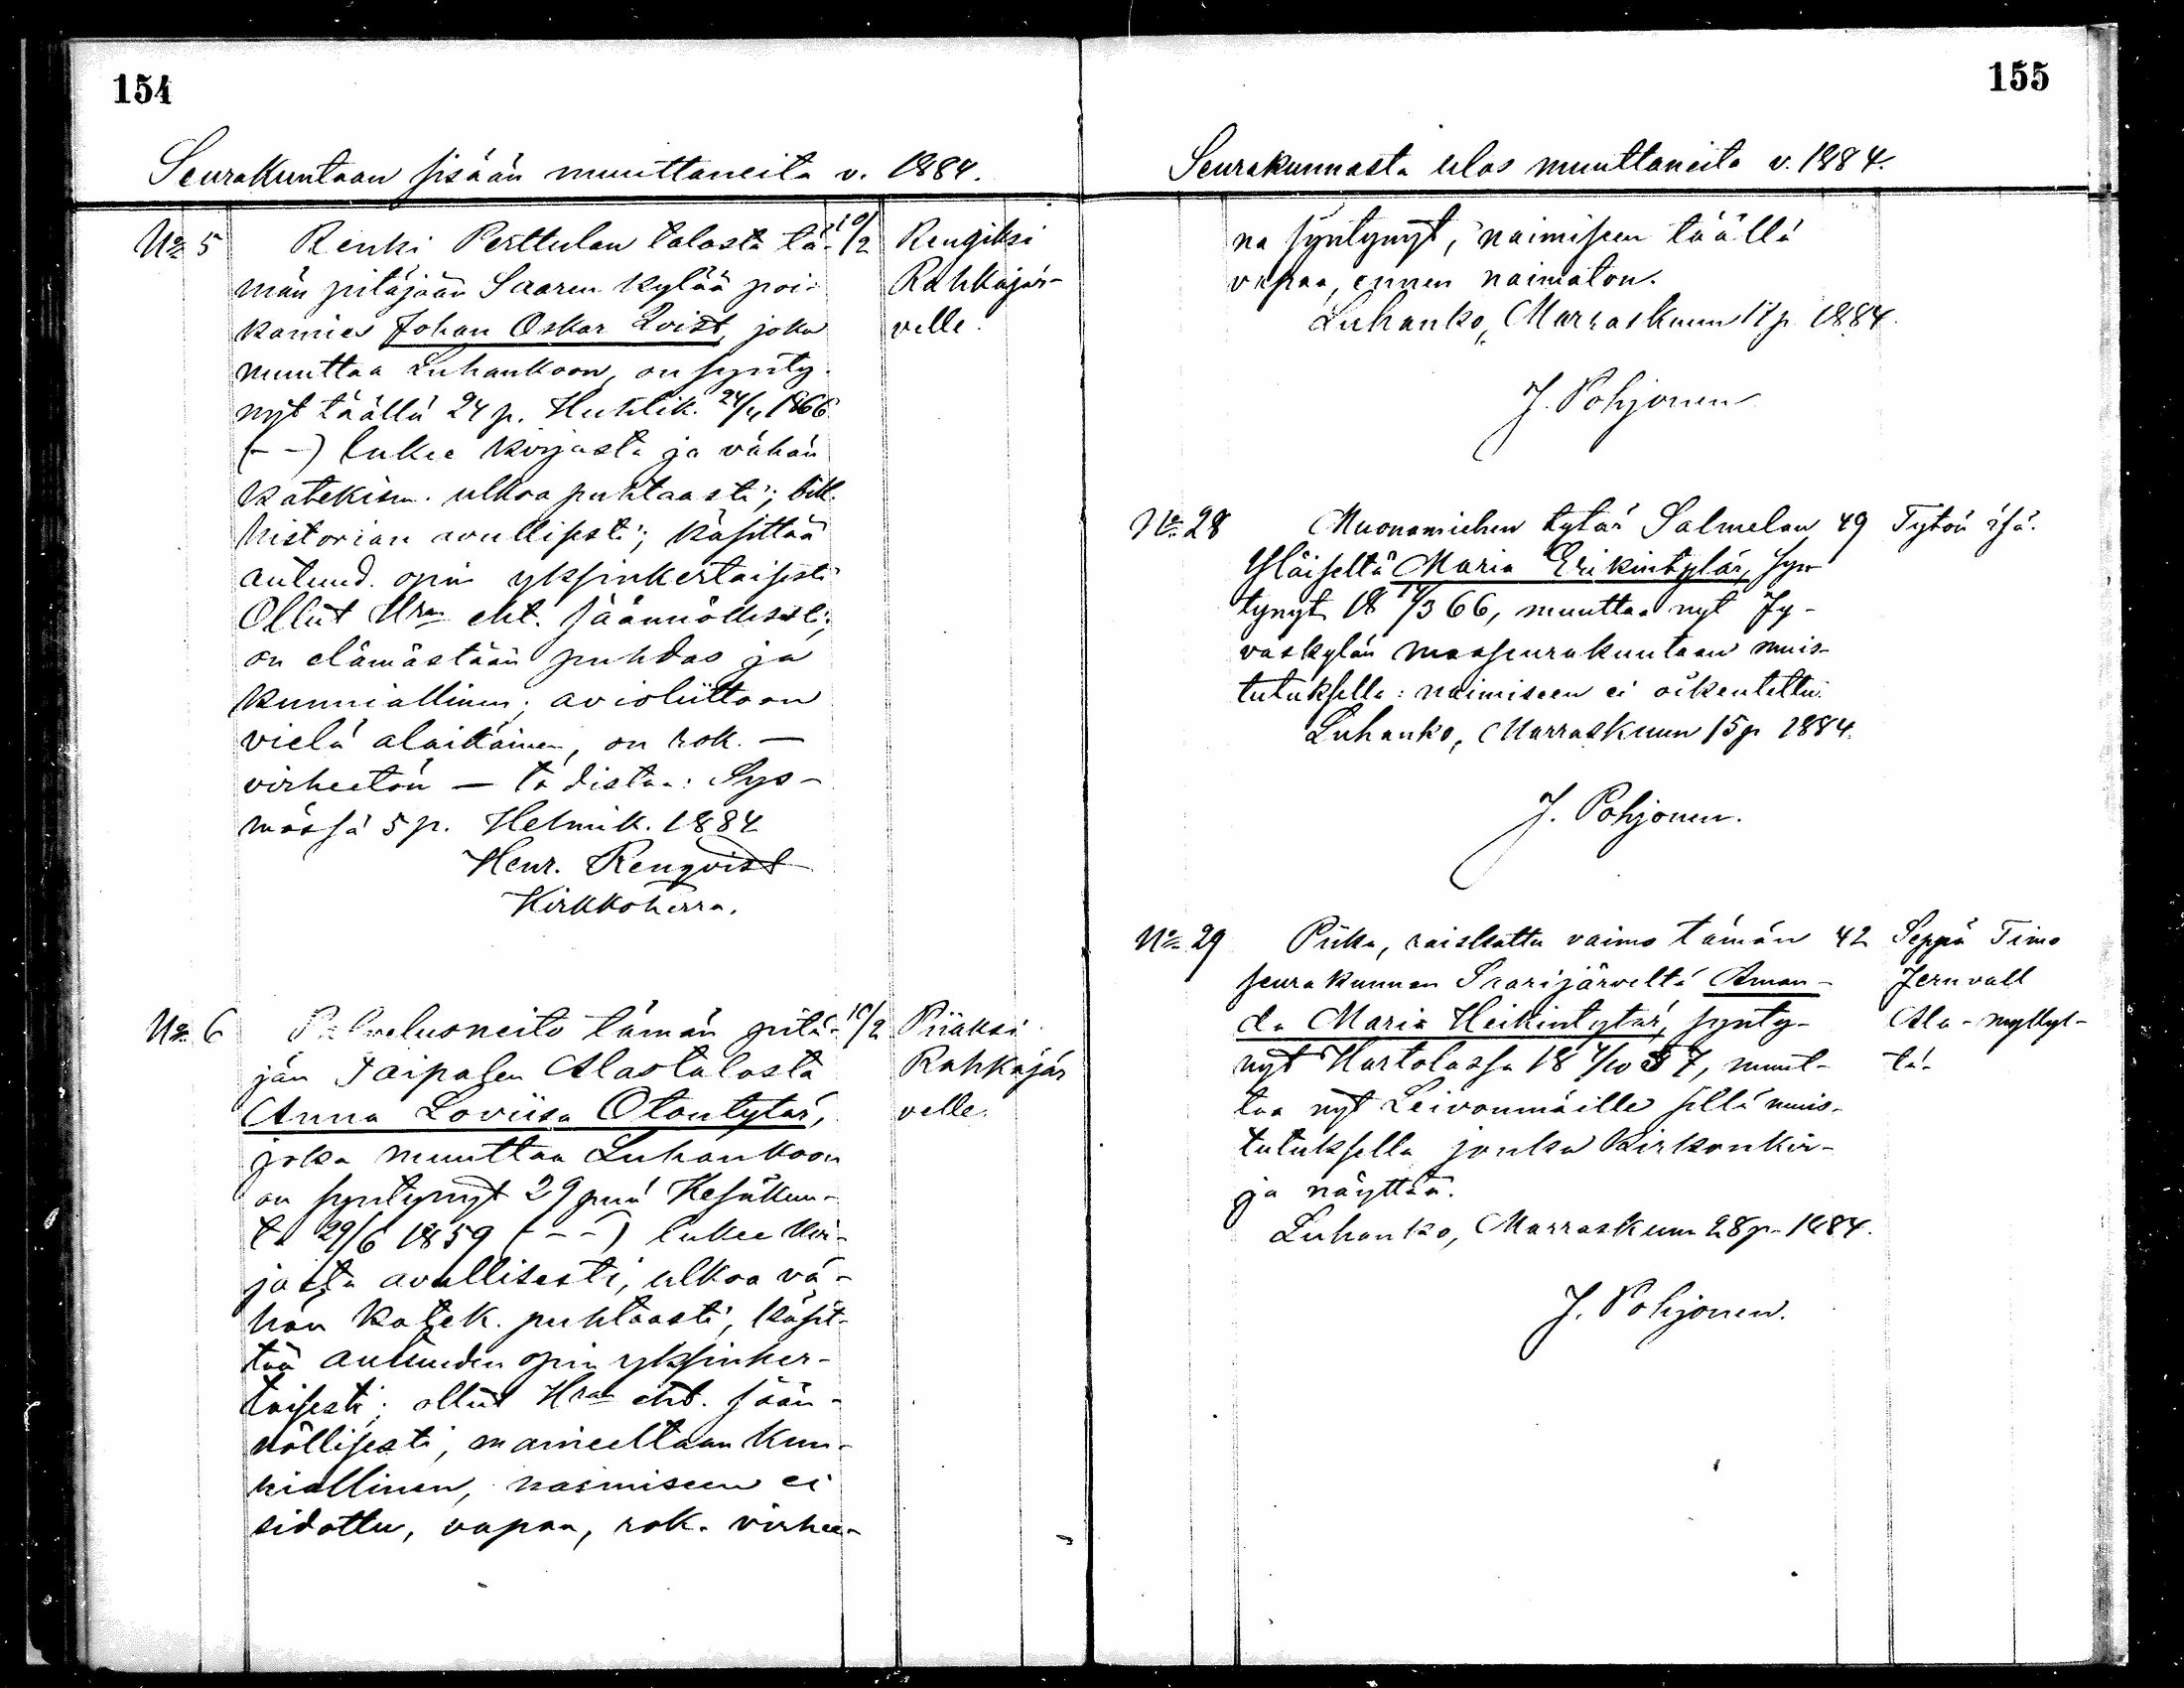 154
Seurakuntaan sisään muuttaneita v. 1884.
No 5 Renki Perttulan talosta tä- 10/2 Rengiksi
män pitäjään Saaren kylää poi- Rahkajär-
kamies Johan Oskar Qvist, joka velle.
muuttaa Luhankoon, on synty-
nyt täällä 24 p. Huhtik. 24/4 1866
(- -) lukee kirjasta ja vähän
katekism. ulkoa puhtaasti; bibl.
historian avullisesti; käsittää
autuud. opin yksinkertaisesti
Ollut Hran eht. säännöllisesti;
on elämästään puhdas ja
kunniallinen; avioliittoon
vielä alaikäinen, on rok. —
virheetön — todistaa: Sys-
mässä 5 p. Helmik. 1884
Henr. Renqvist
Kirkkoherra.
No 6 Palvelusneito tämän pitä- 10/2 Piiaksi
jän Taipalen Alastalosta Rahkajär
Anna Loviisa Otontytär, velle.
joka muuttaa Luhankoon
on syntynyt 29 pnä Kesäkuu-
ta 29/6 1859 (- -) lukee kir-
jasta avullisesti, ulkoa vä-
hän katek. puhtaasti, käsit-
tää autuuden opin yksinker-
taisesti; ollut Hran eht. sään-
nöllisesti, maineeltaan kun-
niallinen, naimiseen ei
sidottu, vapaa, rok. virhee-
155
Seurakunnasta ulos muuttaneita v. 1884.
na syntynyt, naimiseen täällä
vapaa, ennen naimaton.
Luhanko, Marraskuun 17 p. 1884.
J. Pohjonen
No 28 Muonamiehen tytär Salmelan 49 Tytön isä.
Yläiseltä Maria Erikintytär, syn
tynyt 18 14/3 66, muuttaa nyt Jy-
väskylän maaseurakuntaan muis-
tutuksella: naimiseen ei oikeutettu.
Luhanko, Marraskuun 15 p 1884.
J. Pohjonen.
No 29 Piika, raiskattu vaimo tämän 42 Seppä Timo
seurakunnan Saarijärveltä Aman- Jernvall
da Maria Heikintytär, synty- Ala-myllyl-
nyt Hartolassa 18 4/10 57, muut- tä.
taa nyt Leivonmäille sillä muis-
tutuksella jonka kirkonkir-
ja näyttää.
Luhanko, Marraskuun 28 p. 1884.
J. Pohjonen.